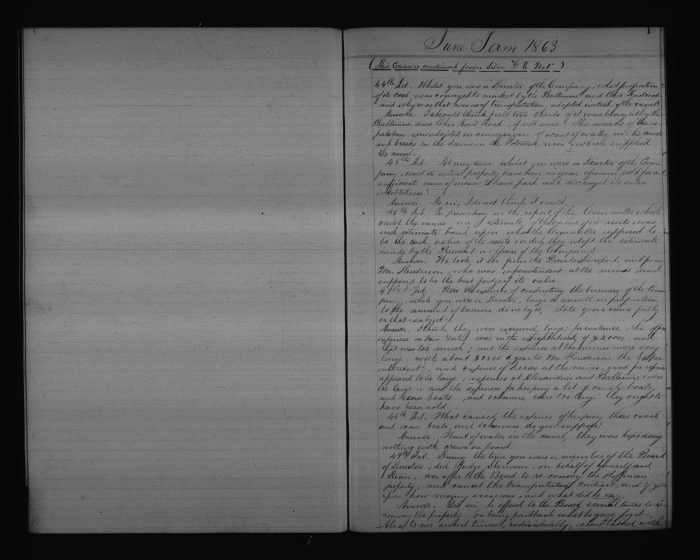 1
June Term 1863
(This Cause is continued from Liber
44th Int. Whilst you were a Director of the Company, what proportion
of its coal, was conveyed to market by the Baltimore and Ohio Railroad
and why was that means of transportation adopted instead of the canal?
Answer. I should think full two thirds of it was brought by the
Baltimore and Ohio Rail Road, if not more; the means of trans-
portation was adopted in consequence of want of water in the canal
and breaks in the dams on the Potomac river, which supplied
the canal.
45th Int. At any time whilst you were a Director of the Com-
pany, could its entire property have been in your opinion sold for a
sufficient sum of money to have paid and discharged its entire
indebtedness?
Answer. No sir, I do not think it could.
46th Int. In presenting in the report of the Committee which
visited the mines, an estimate of the value of its assets, was
such estimate based upon what the Committee supposed to
be the cash value of the assets or did they adopt the estimate
made by the President or officers of the Company?
Answer. We took it from the President's report, and from
Mr. Henderson, who was superintendent at the mines and
supposed to be the best judge of its value.
47th Int. Were the expenses of conducting the business of the Com-
pany, while you were a Director, large or small in proportion
to the amount of business done by it, state your views fully
on that subject?
Answer. I think they were large; the office
expenses in New York, was with a of $2000, and
that was too much; and the expenses at the mines were very
large, with about $2500 a year to Mr. Henderson the superin-
tendent; and expenses of horses at the mines, and for repairs
appeared to be large; expenses at Alexandria and Baltimore were
too large; and the expenses for keeping a lot of canal boats,
and scow boats, and schooners were too large; they ought to
have been sold.
48th Int. What caused the expenses of keeping those canal
and scow boats, and schooners do you suppose?
Answer. Want of water in the canal, they were kept doing
nothing with crews on board.
49th Int. During the time you were a member of the Board
of Directors, did Judge Sherman, on behalf of himself and
Dean, ever offer to the Board to re-convey the Hoffman
property, and cancel the transportation contract, and if yea
upon how many occasions, and what did he say.
Answer. Yes sir; he offered to the Board several times to re-
convey the property, on being paid back what he gave for it
Also to me several times, individually, when I talked with